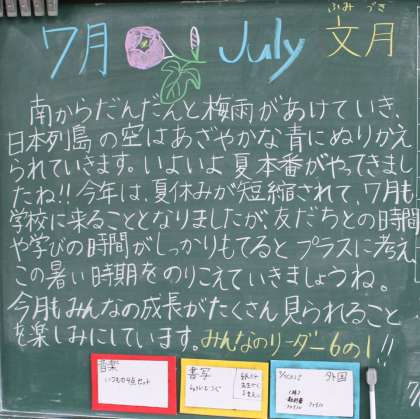 7月 July 文月
ふみ づき
南からだんだんと梅雨があけていき、
日本列島の空はあざやかな青にぬりかえ
られていきます。いよいよ夏本番がやってきまし
たね!!今年は、夏休みが短縮されて、7月も
学校に来ることとなりましたが、友だちとの時間
や学びの時間がしっかりもてるとプラスに考え、
この暑い時期をのりこえていきましょうね。
今月もみんなの成長がたくさん見られること
を楽しみにしています。みんなのリーダー6の1!!
音楽
いつもの4点セット
書写
外国